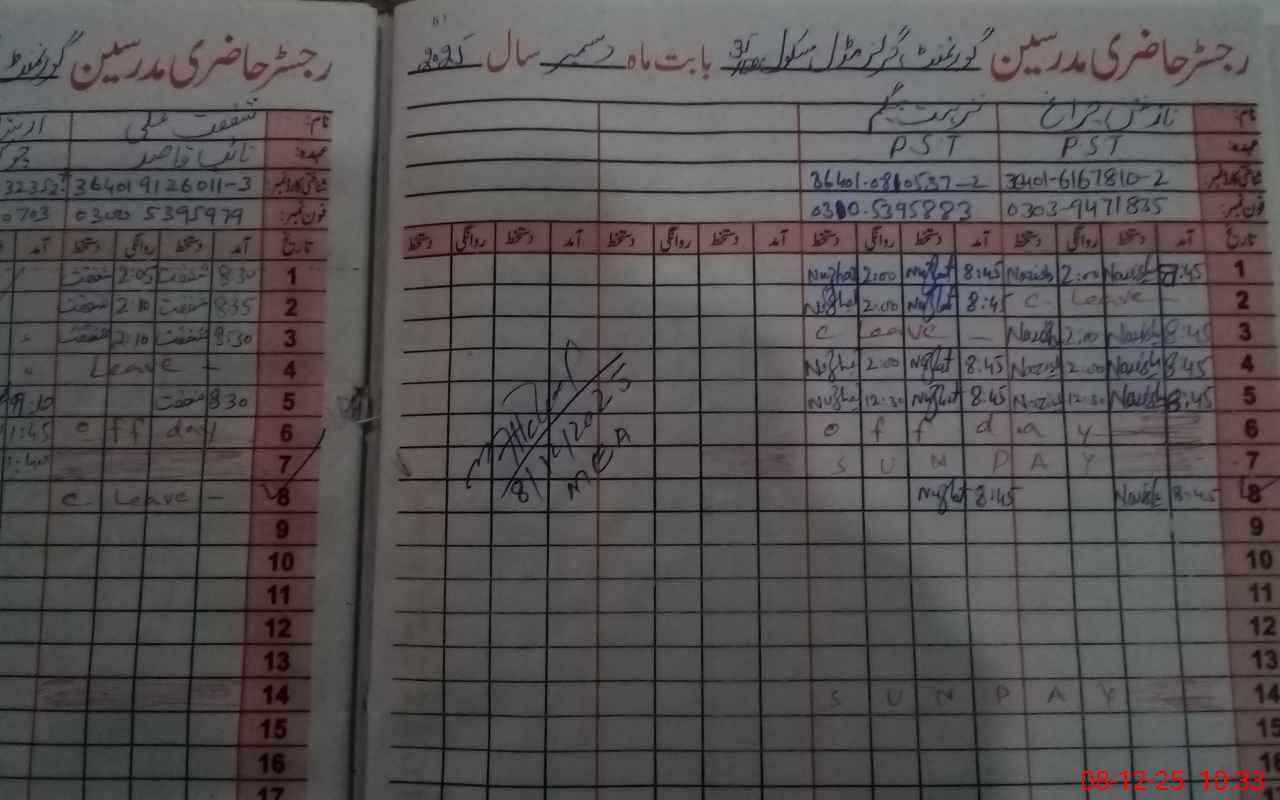 رجسٹر حاضری مدرسین گورنمنٹ گرلز مڈل سکول بابت ماہ دسمبر سال 2025
نام: نازش چراغ نزہت بیگم
عہدہ: P.S.T P.S.T
شناختی کارڈ نمبر: 36401-6167810-2 36401-0810537-2
فون نمبر: 0303-9471835 0300-5395883
تاریخ آمد دستخط روانگی دستخط آمد دستخط روانگی دستخط آمد دستخط روانگی دستخط آمد دستخط روانگی دستخط
1 8:45 Nazish 2:00 Nazish 8:45 Nuzhat 2:00 Nuzhat
2 C. Leave - 8:45 Nuzhat 2:00 Nuzhat
3 8:45 Nazish 2:00 Nazish C Leave -
4 8:45 Nazish 2:00 Nazish 8:45 Nuzhat 2:00 Nuzhat
5 8:45 Nazish 12:30 Nazish 8:45 Nuzhat 12:30 Nuzhat
6 off day
7 SUNDAY
8 8:45 Nazish 8:45 Nuzhat
9
10
11
12
13
14 SUNDAY
15
16
8/12/2025
MEA
رجسٹر حاضری مدرسین گورنمنٹ
نام: شفقت علی
عہدہ: نائب قاصد
شناختی کارڈ نمبر: 364019126011-3
فون نمبر: 0300 5395979 0703
تاریخ آمد دستخط روانگی دستخط آمد
1 8:30 شفقت 2:05 شفقت
2 8:35 شفقت 2:10 شفقت
3 8:30 شفقت 2:10 شفقت
4 Leave -
5 8:30 شفقت
6 off day 1:45
7
8 C. Leave -
9
10
11
12
13
14
15
16
17
08-12-25 10:33